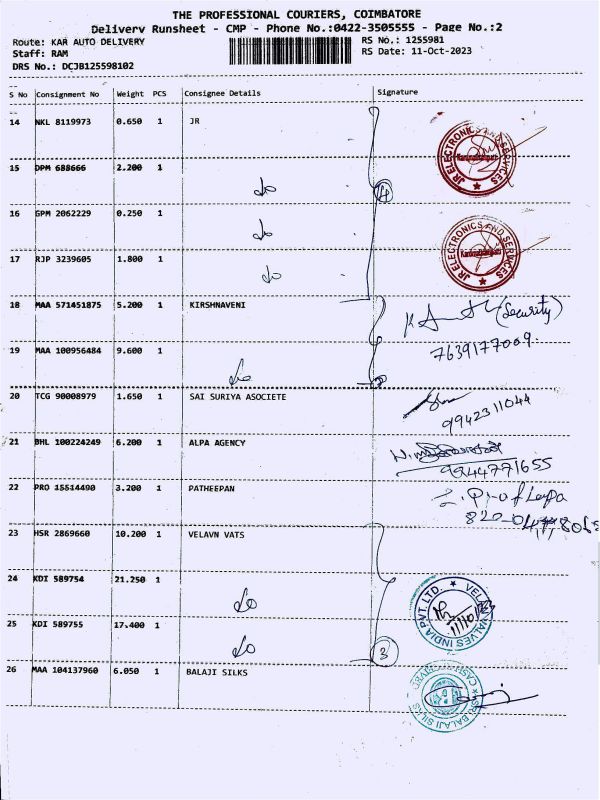 THE PROFESSIONAL COURIERS, COIMBATORE
Delivery Runsheet - CMP - Phone No.:0422-3505555 - Page No.:2
Route: KAR AUTO DELIVERY RS No.: 1255981
Staff: RAM RS Date: 11-Oct-2023
DRS No.: DCJB125598102
S No Consignment No Weight PCS Consignee Details Signature
14 NKL 8119973 0.650 1 JR
JR ELECTRONICS AND SERVICES
15 DPM 688666 2.200 1
do 4
16 GPM 2062229 0.250 1
do
JR ELECTRONICS AND SERVICES
17 RJP 3239605 1.800 1
do
18 MAA 571451875 5.200 1 KIRSHNAVENI
(Security)
7639177009.
19 MAA 100956484 9.600 1
do
20 TCG 90008979 1.650 1 SAI SURIYA ASOCIETE
9942311044
21 BHL 100224249 6.200 1 ALPA AGENCY
9244771655
22 PRO 15514490 3.200 1 PATHEEPAN
23 HSR 2869660 10.200 1 VELAVN VATS
24 KDI 589754 21.250 1
do
VELAN VALVES INDIA PVT. LTD.
11/10/23
25 KDI 589755 17.400 1
do 3
26 MAA 104137960 6.050 1 BALAJI SILKS
SRI BALAJI SILKS